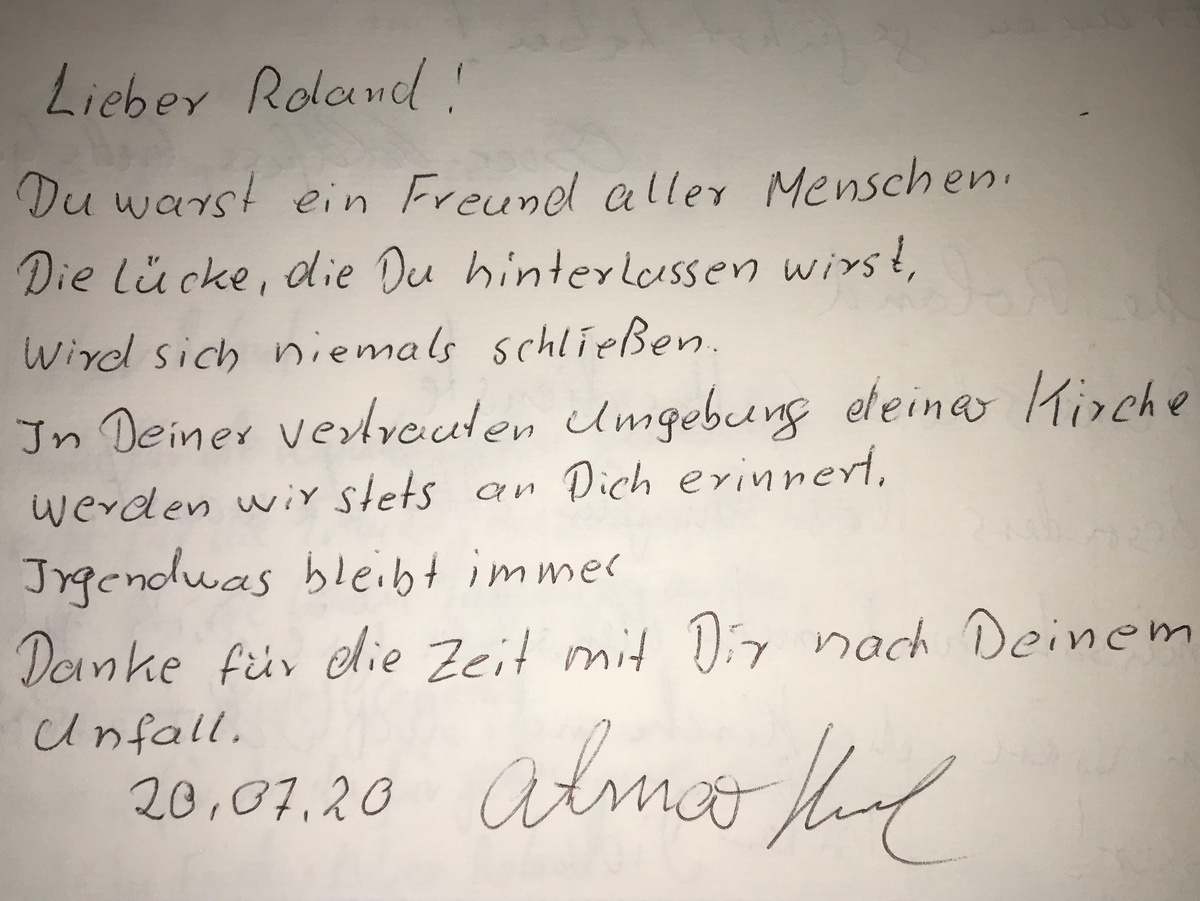 Lieber Roland!
Du warst ein Freund aller Menschen.
Die Lücke, die Du hinterlassen wirst,
wird sich niemals schließen.
In Deiner vertrauten Umgebung deiner Kirche
werden wir stets an Dich erinnert.
Irgendwas bleibt immer
Danke für die Zeit mit Dir nach Deinem
Unfall.
20.07.20